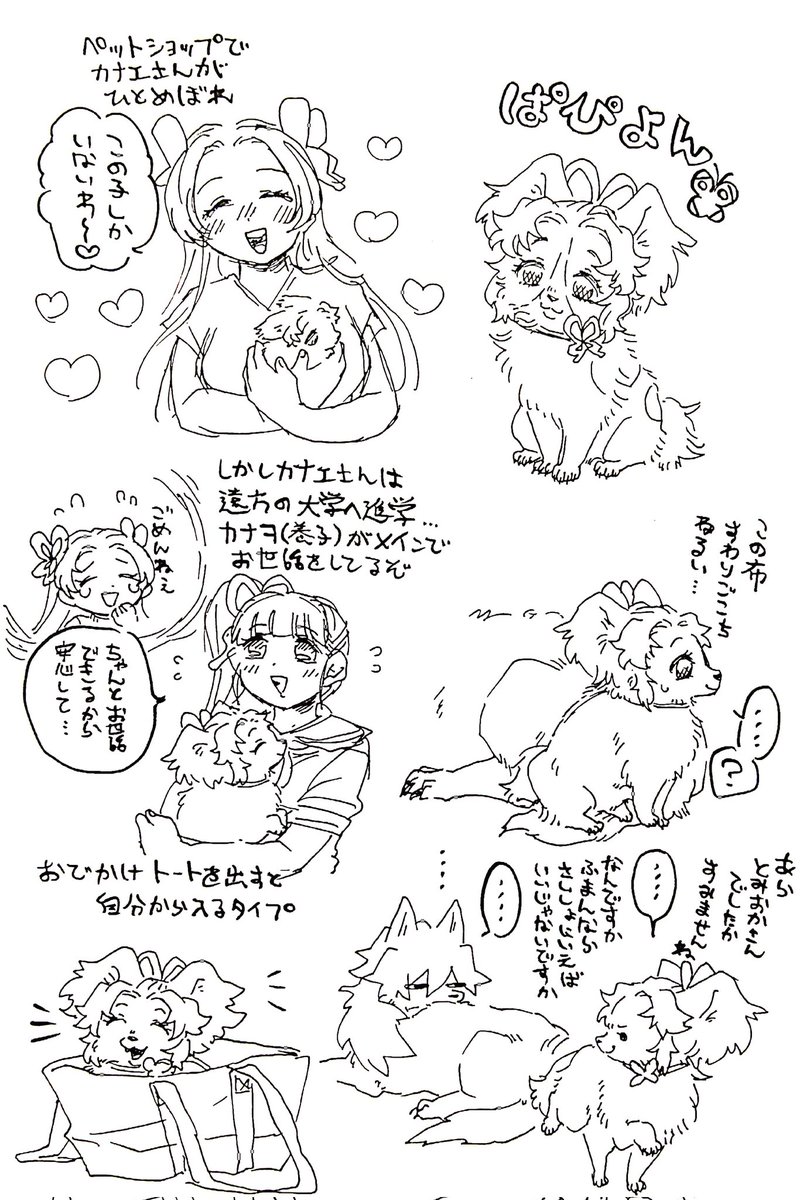 ペットショップで
カナエさんが
ひとめぼれ
この子しか
いないわ〜♡
ぱぴよん
しかしカナエさんは
遠方の大学へ進学…
カナヲ(養子)がメインで
お世話をしてるぞ
ごめんねぇ
ちゃんとお世話
できるから
安心して…
この布
すわりごこち
わるい…
……
おでかけトートを出すと
自分から入るタイプ
あら
とみおかさん
でしたか
すみません
ね
……
なんですか
ふまんなら
さいしょにいえば
いいじゃないですか
……
…